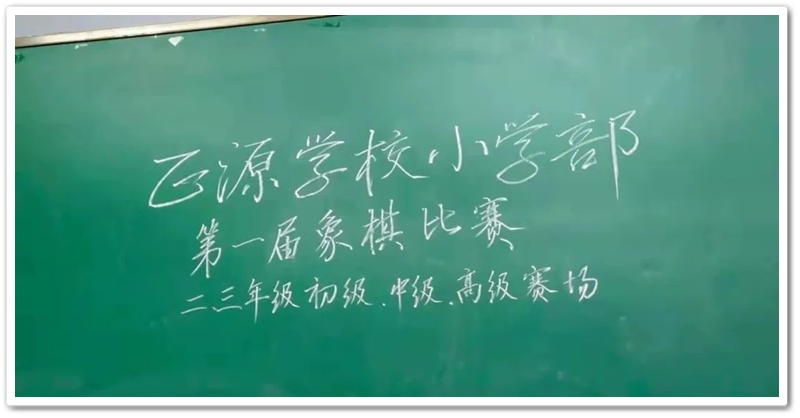 正源学校小学部
第一届象棋比赛
二、三年级初级、中级、高级赛场